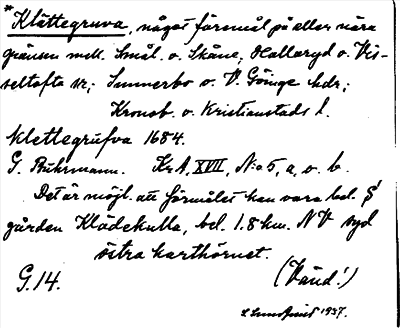 *Klättegruva, något föremål på eller nära
gränsen mell. Smål. o. Skåne; Hallaryd o. Vis-
seltofta sr; Sunnerbo o. V. Göinge hdr;
Kronob. o. Kristianstads l.
Klettegrufva 1684.
G. Buhrmann. KrA, XVII, N:o 5, a, o. b.
Det är möjl. att föremålet kan vara bel. på
gården Klädekulla, bel. 1.8 km. NV syd
östra karthörnet.
G. 14. (Vänd!)
E Lundquist 1937.